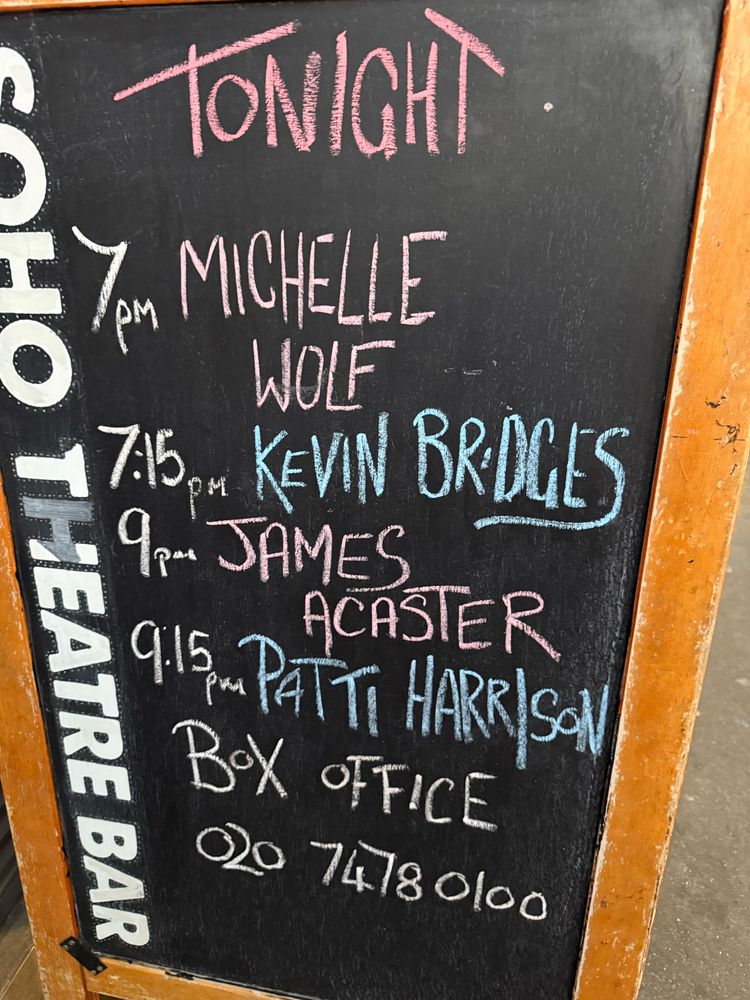 TONIGHT
7pm MICHELLE
WOLF
7:15pm KEVIN BRiDGES
9pm JAMES
ACASTER
9.15pm PATTI HARRISON
BOX OFFICE
020 7478 0100
SOHO THEATRE BAR